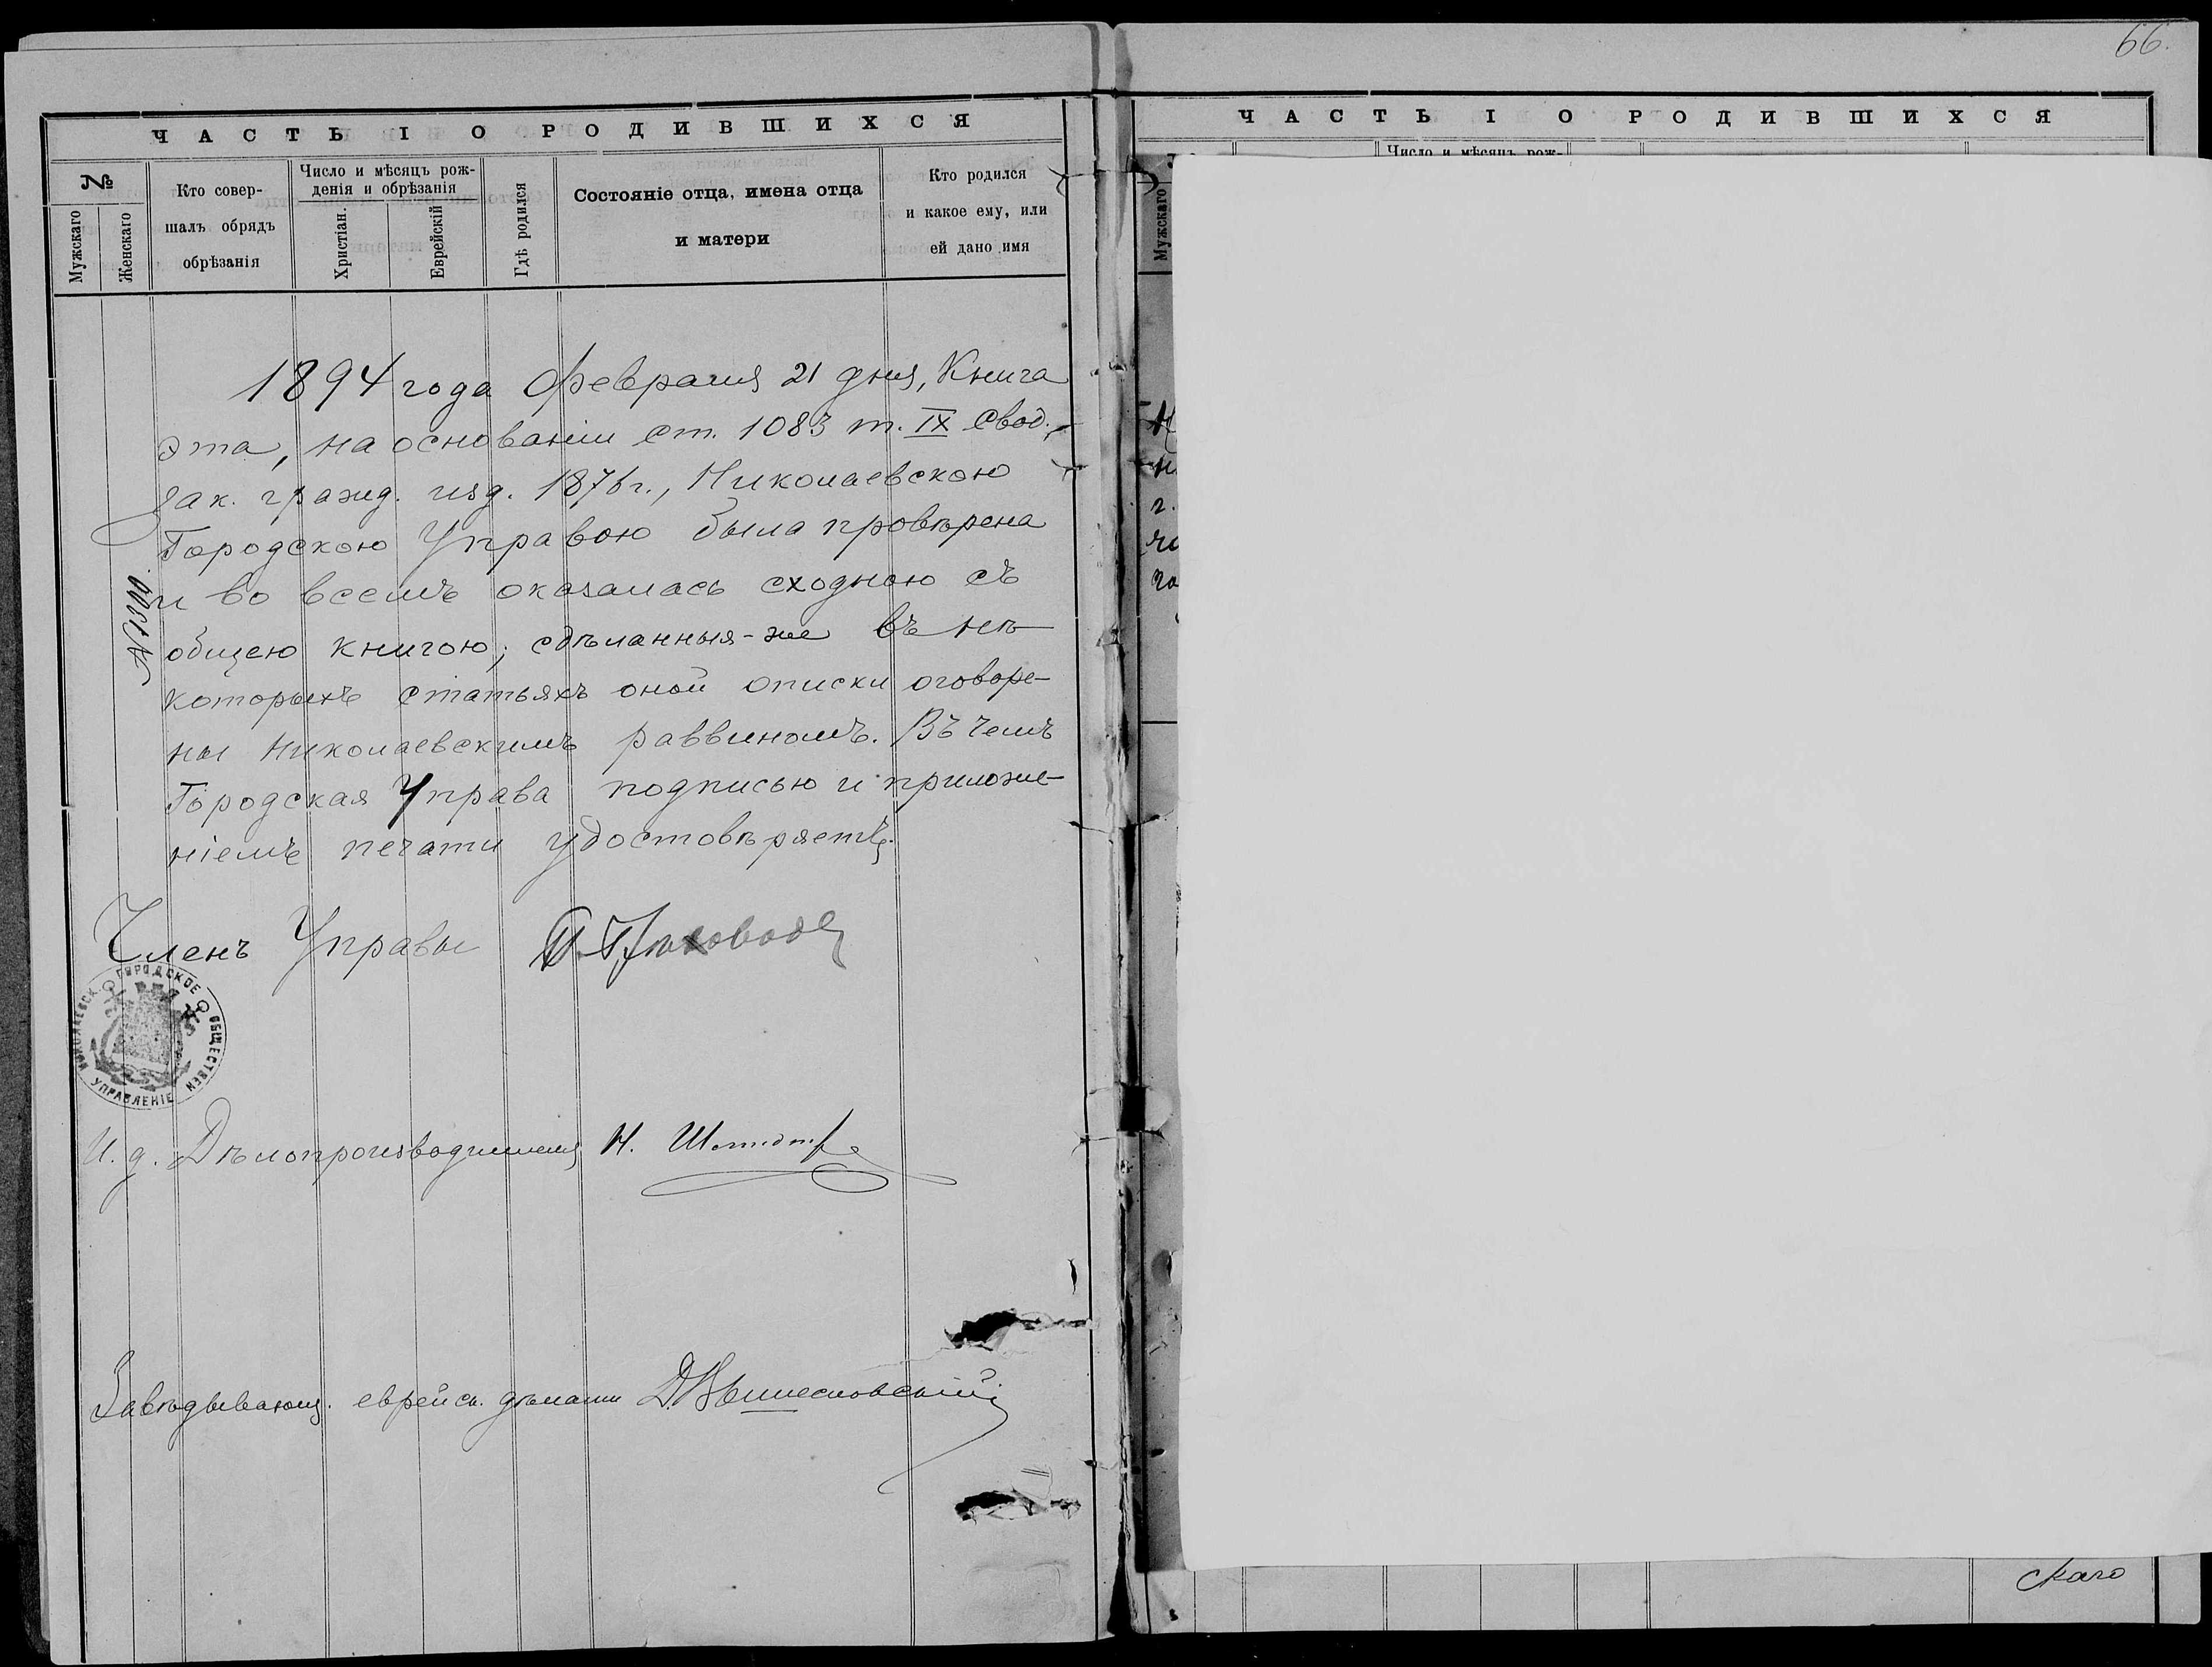 66.
ЧАСТЬ I О РОДИВШИХСЯ
№
Мужскаго
Женскаго
Кто совер-
шалъ обрядъ
обрѣзанія
Число и мѣсяцъ рож-
денія и обрѣзанія
Христіан.
Еврейскій
Гдѣ родился
Состояніе отца, имена отца
и матери
Кто родился
и какое ему, или
ей дано имя
1894 года Февраля 21 дня, Книга
эта, на основаніи ст. 1083 т. IX Свод.
Зак. гражд. изд. 1876 г., Николаевскою
Городскою Управою была провѣрена
и во всемъ оказалась сходною съ
общею книгою; сдѣланныя-же въ нѣ
которыхъ статьяхъ оной описки оговоре-
ны Николаевскимъ раввиномъ. Въ чемъ
Городская Управа подписью и приложе-
ніемъ печати удостовѣряетъ.
Членъ Управы
НИКОЛАЕВСК. ГОРОДСКОЕ ОБЩЕСТВЕН УПРАВЛЕНІЕ
И. д. Дѣлопроизводителя Н.
Завѣдывающ. еврейск. дѣлами
ЧАСТЬ I О РОДИВШИХСЯ
Число и мѣсяцъ рож-
Мужскаго
скаго